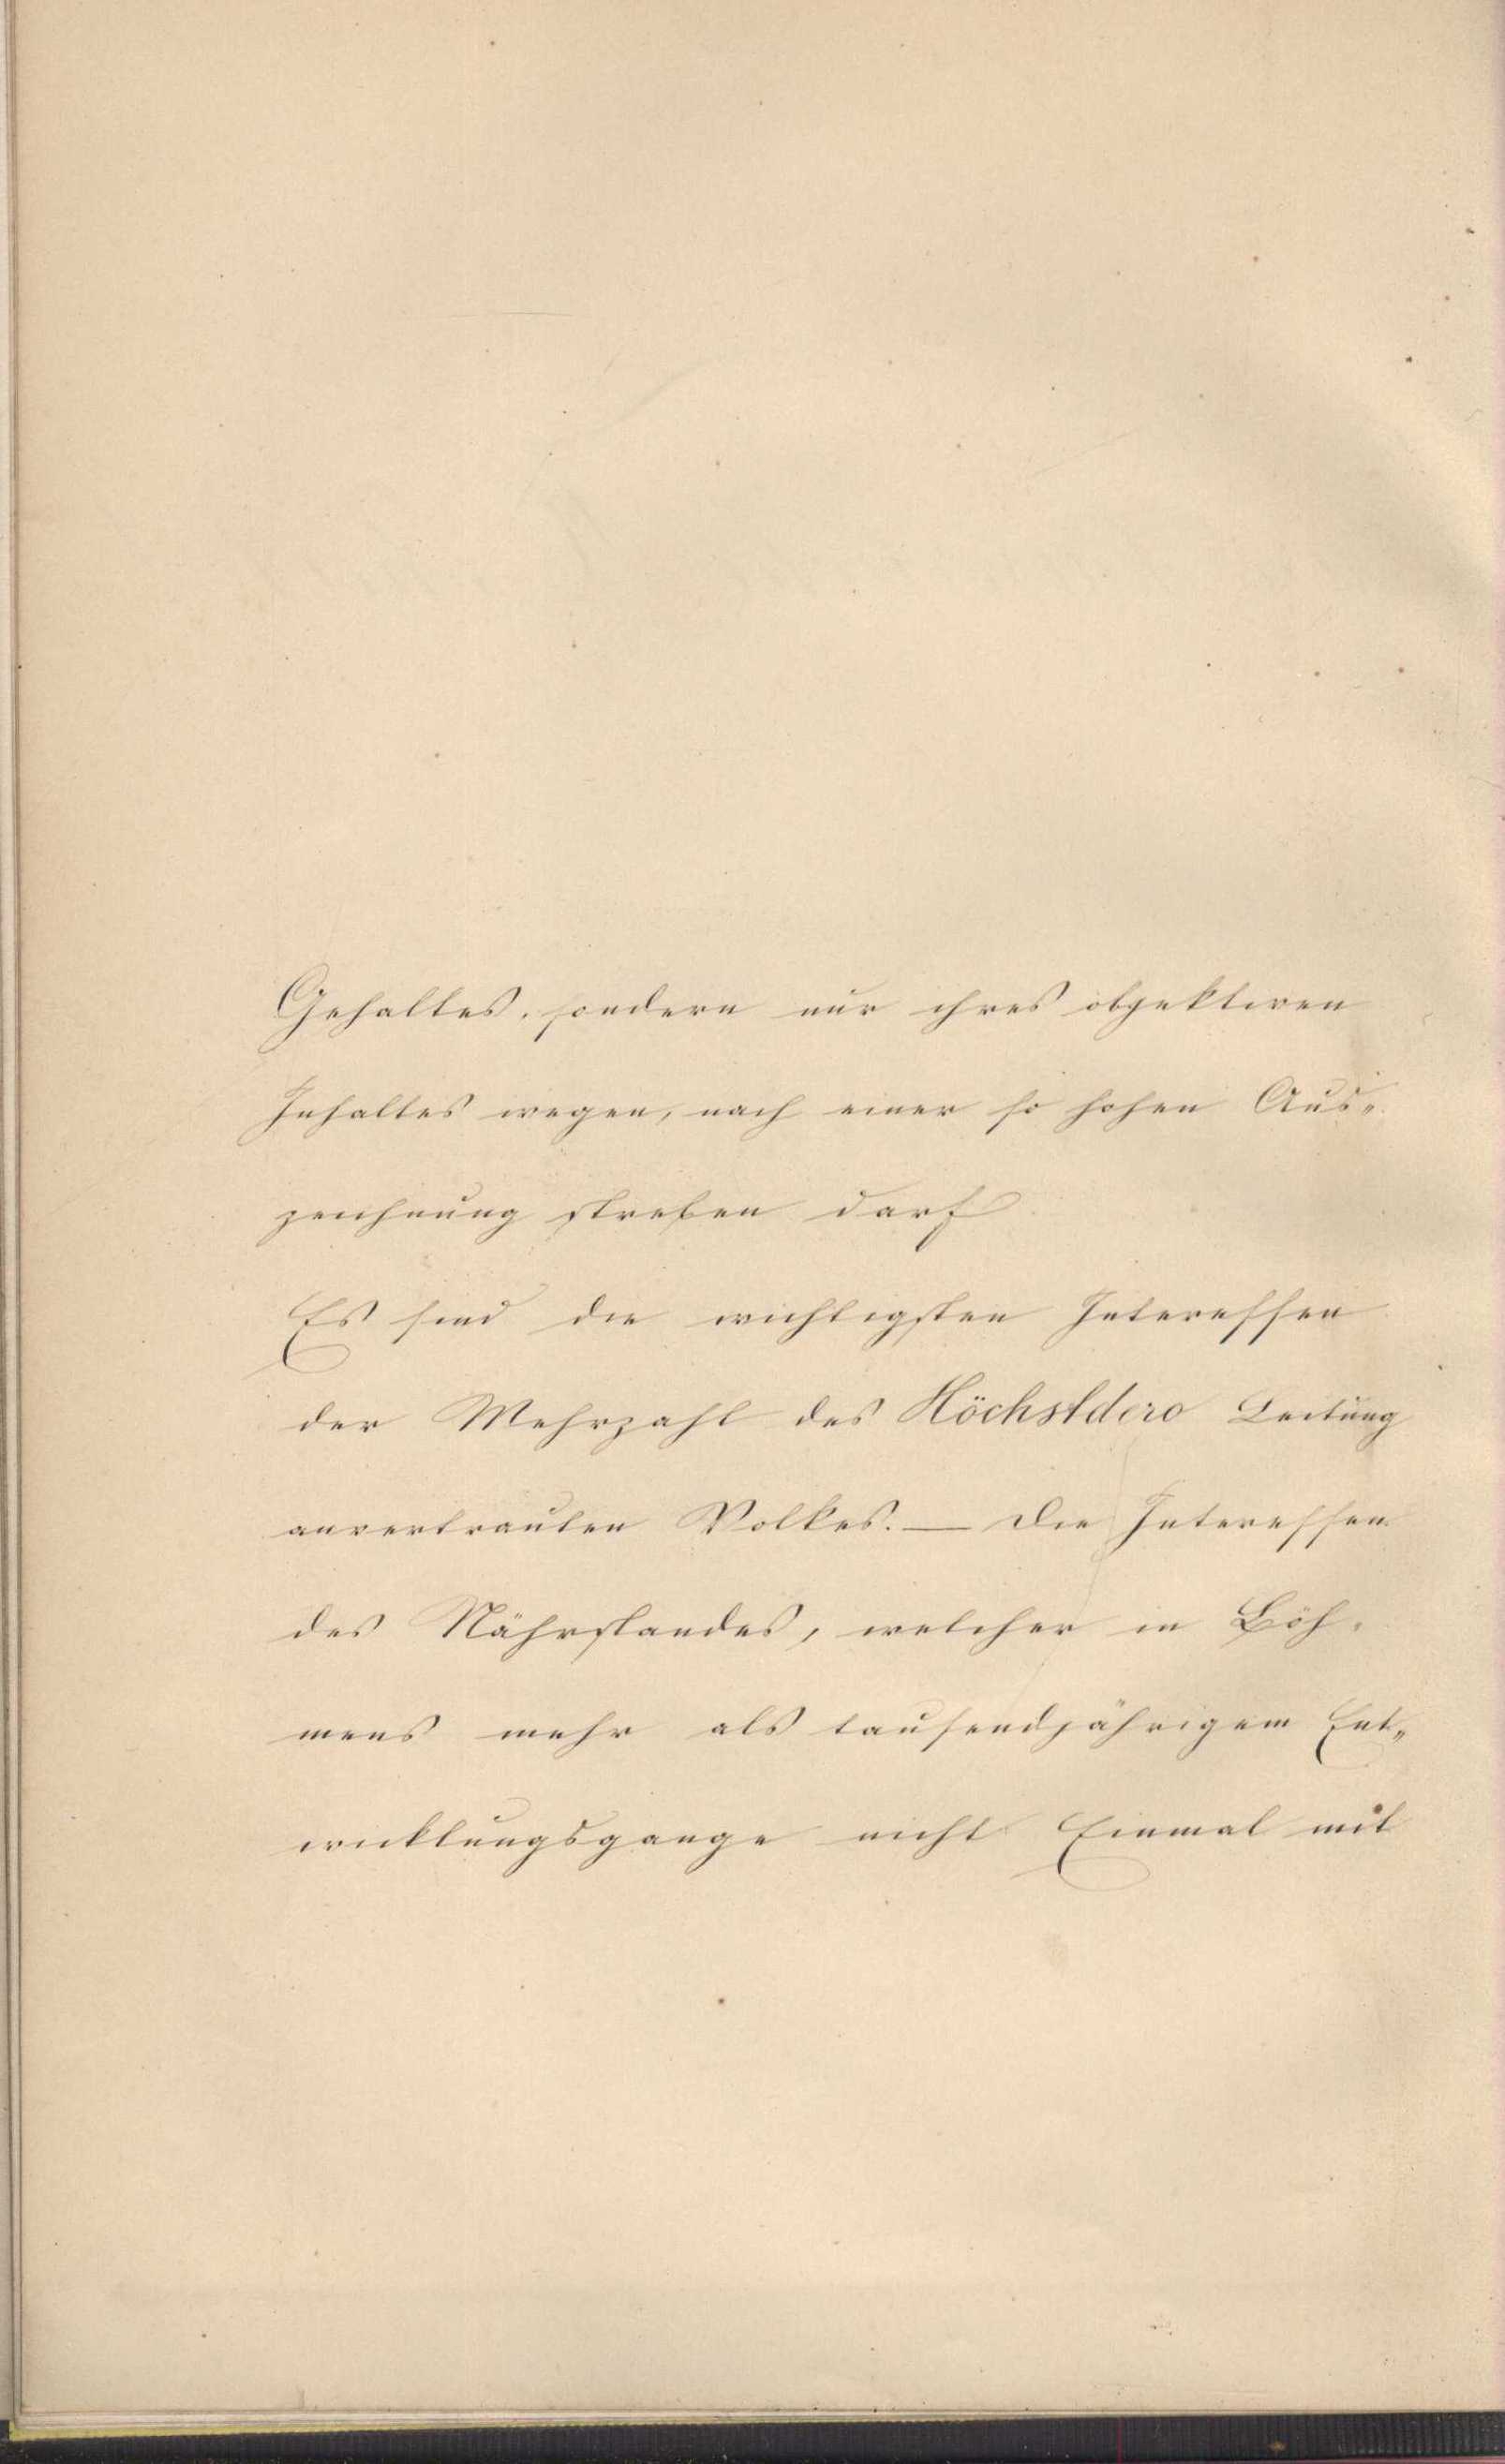 Gehaltes, sondern nur ihres objektiven
Inhaltes wegen, nach einer so hohen Aus„
zeichnung streben darf.
Es sind die wichtigsten Interessen
der Mehrzahl des Höchstdero Leitung
anvertrauten Volkes. — Die Interessen
des Nährstandes, welcher in Böh„
mens mehr als tausendjährigem Ent„
wicklungsgange nicht Einmal mit